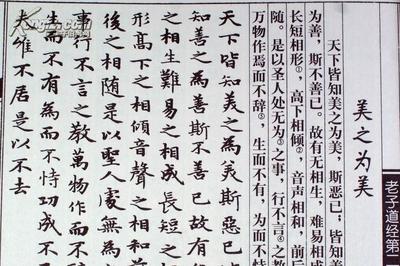 老子道经第二
美之为美
天下皆知美之为美,斯恶已;皆知善
为善,斯不善已。故有无相生,难易相
长短相形①,高下相倾②,音声相和,前后
随。是以圣人处无为③之事,行不言④之教
万物作焉而不辞⑤,生而不有,为而不恃
天下皆知美之為美斯惡已
知善之為善斯不善已故有
之相生難易之相成長短之
形高下之相傾音聲之相和前
後之相隨是以聖人處無為
事行不言之教萬物作而不
生而不有為而不恃功成不
夫唯不居是以不去